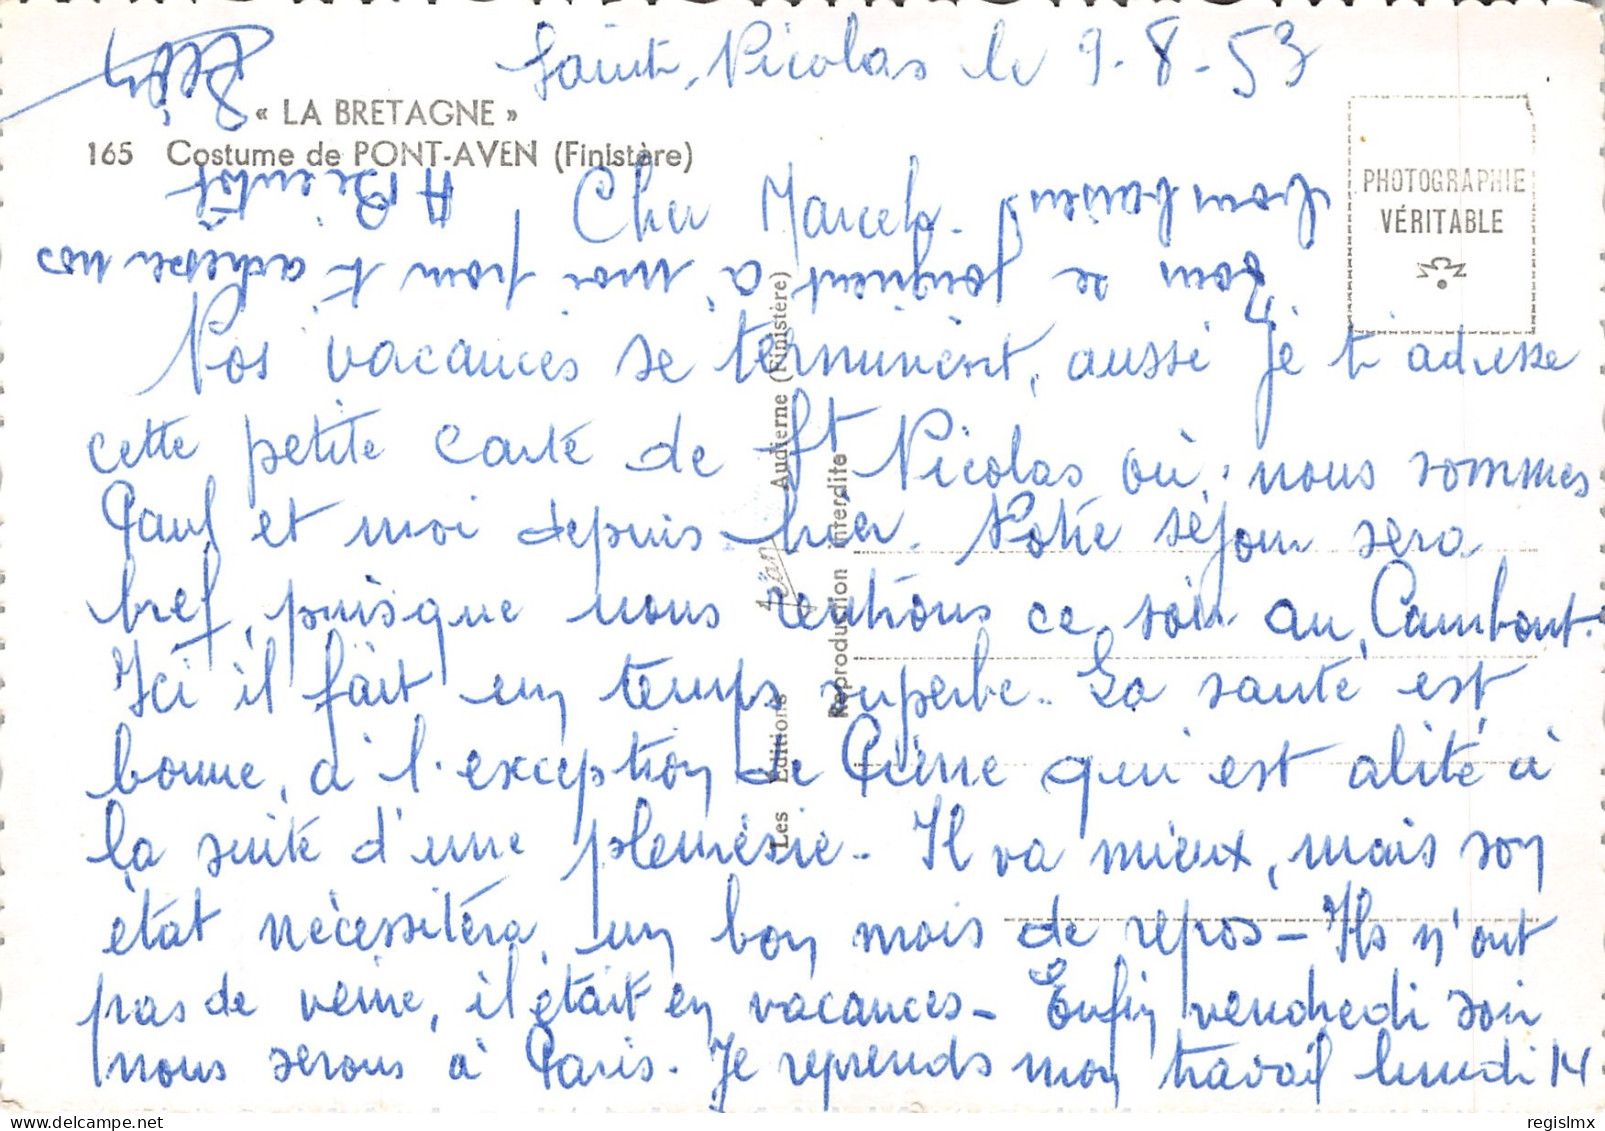 Saint-Nicolas le 9-8-53
« LA BRETAGNE »
165 Costume de PONT-AVEN (Finistère)
PHOTOGRAPHIE
VÉRITABLE
Cher Marcel.
Nos vacances se terminent, aussi je t'adresse
cette petite carte de St Nicolas où nous sommes
Paul et moi depuis hier. Notre séjour sera
bref, puisque nous rentrons ce soir au Cambout.
Ici il fait un temps superbe. La santé est
bonne, à l'exception de Pierre qui est alité à
la suite d'une pleurésie. Il va mieux, mais son
état nécessitera un bon mois de repos - Ils n'ont
pas de veine, il était en vacances - Enfin vendredi soir
nous serons à Paris. Je reprends mon travail lundi 14
Tous se joignent à moi pour t'adresser nos
bons baisers
A Bientôt
Les Editions Jean Audierne (Finistère)
Reproduction interdite
regislmx